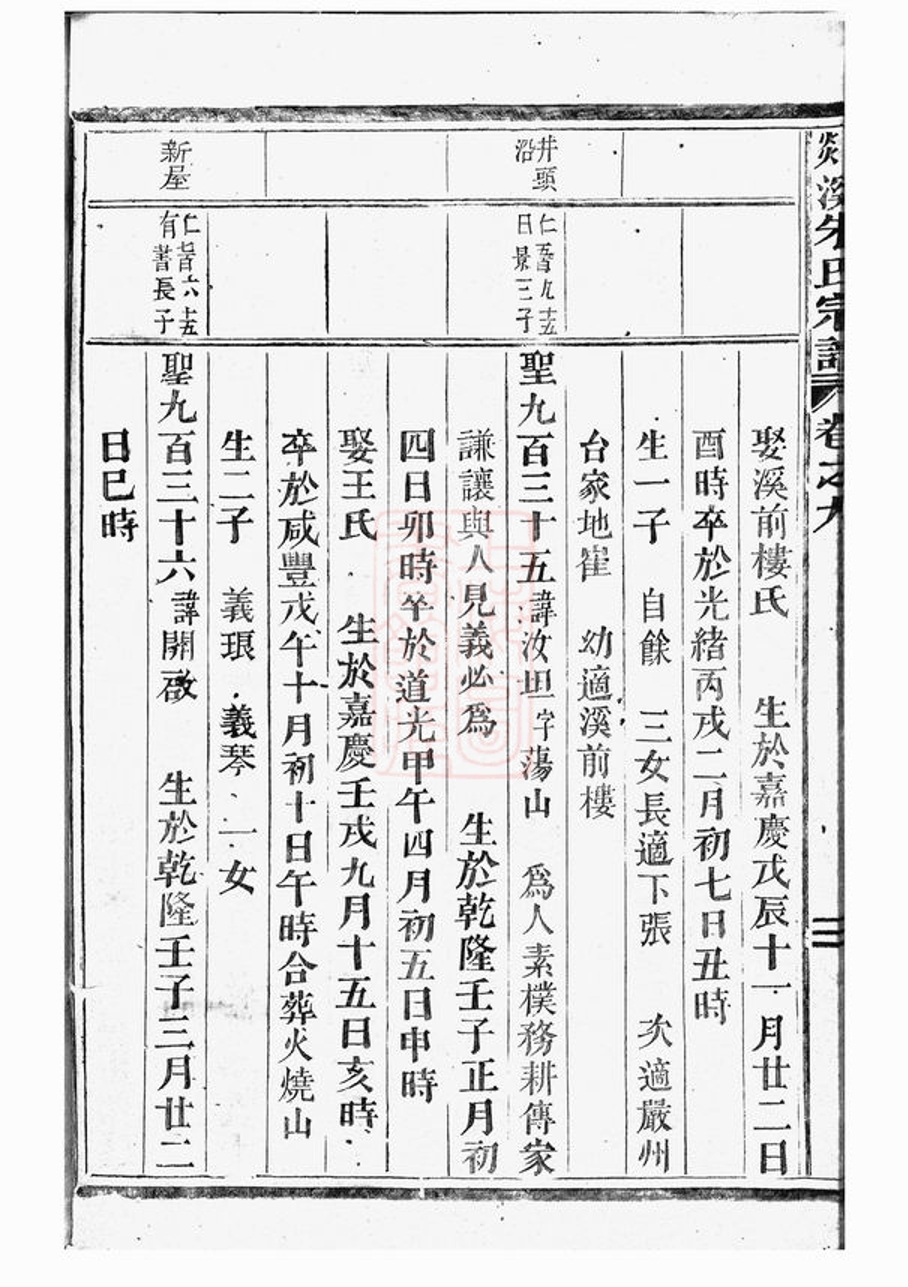 溪朱氏宗譜 卷之九
娶溪前樓氏 生於嘉慶戊辰十一月廿二日
酉時卒於光緒丙戌二月初七日丑時
生一子 自餘 三女長適下張 次適嚴州
台家地崔 幼適溪前樓
井頭沿
仁五百九十五
日景三子
聖九百三十五諱汝坦字蕩山 為人素樸務耕傳家
謙讓與人見義必為 生於乾隆壬子正月初
四日卯時卒於道光甲午四月初五日申時
娶王氏 生於嘉慶壬戌九月十五日亥時
卒於咸豐戊午十月初十日午時合葬火燒山
生二子 義琅 義琴 一女
新屋
仁七百六十五
有書長子
聖九百三十六諱開啟 生於乾隆壬子三月廿二
日巳時